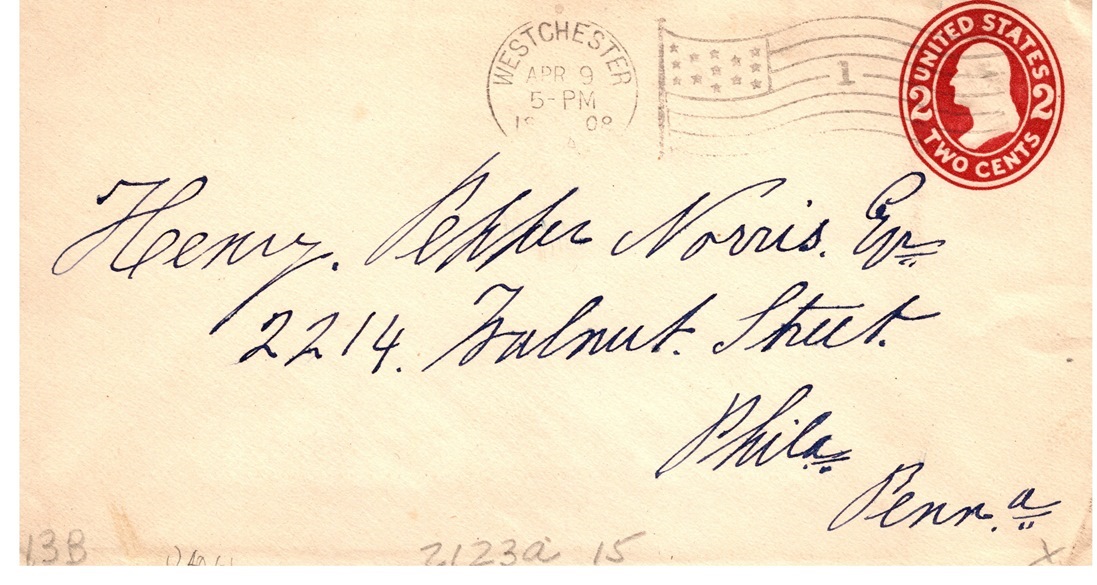 WESTCHESTER
APR 9
5-PM
1908
A
1
UNITED STATES
2 2
TWO CENTS
Henry. Pepper Norris. Esqr
2214. Walnut. Street.
Phila
Penn.a
13B
2123a 15
x